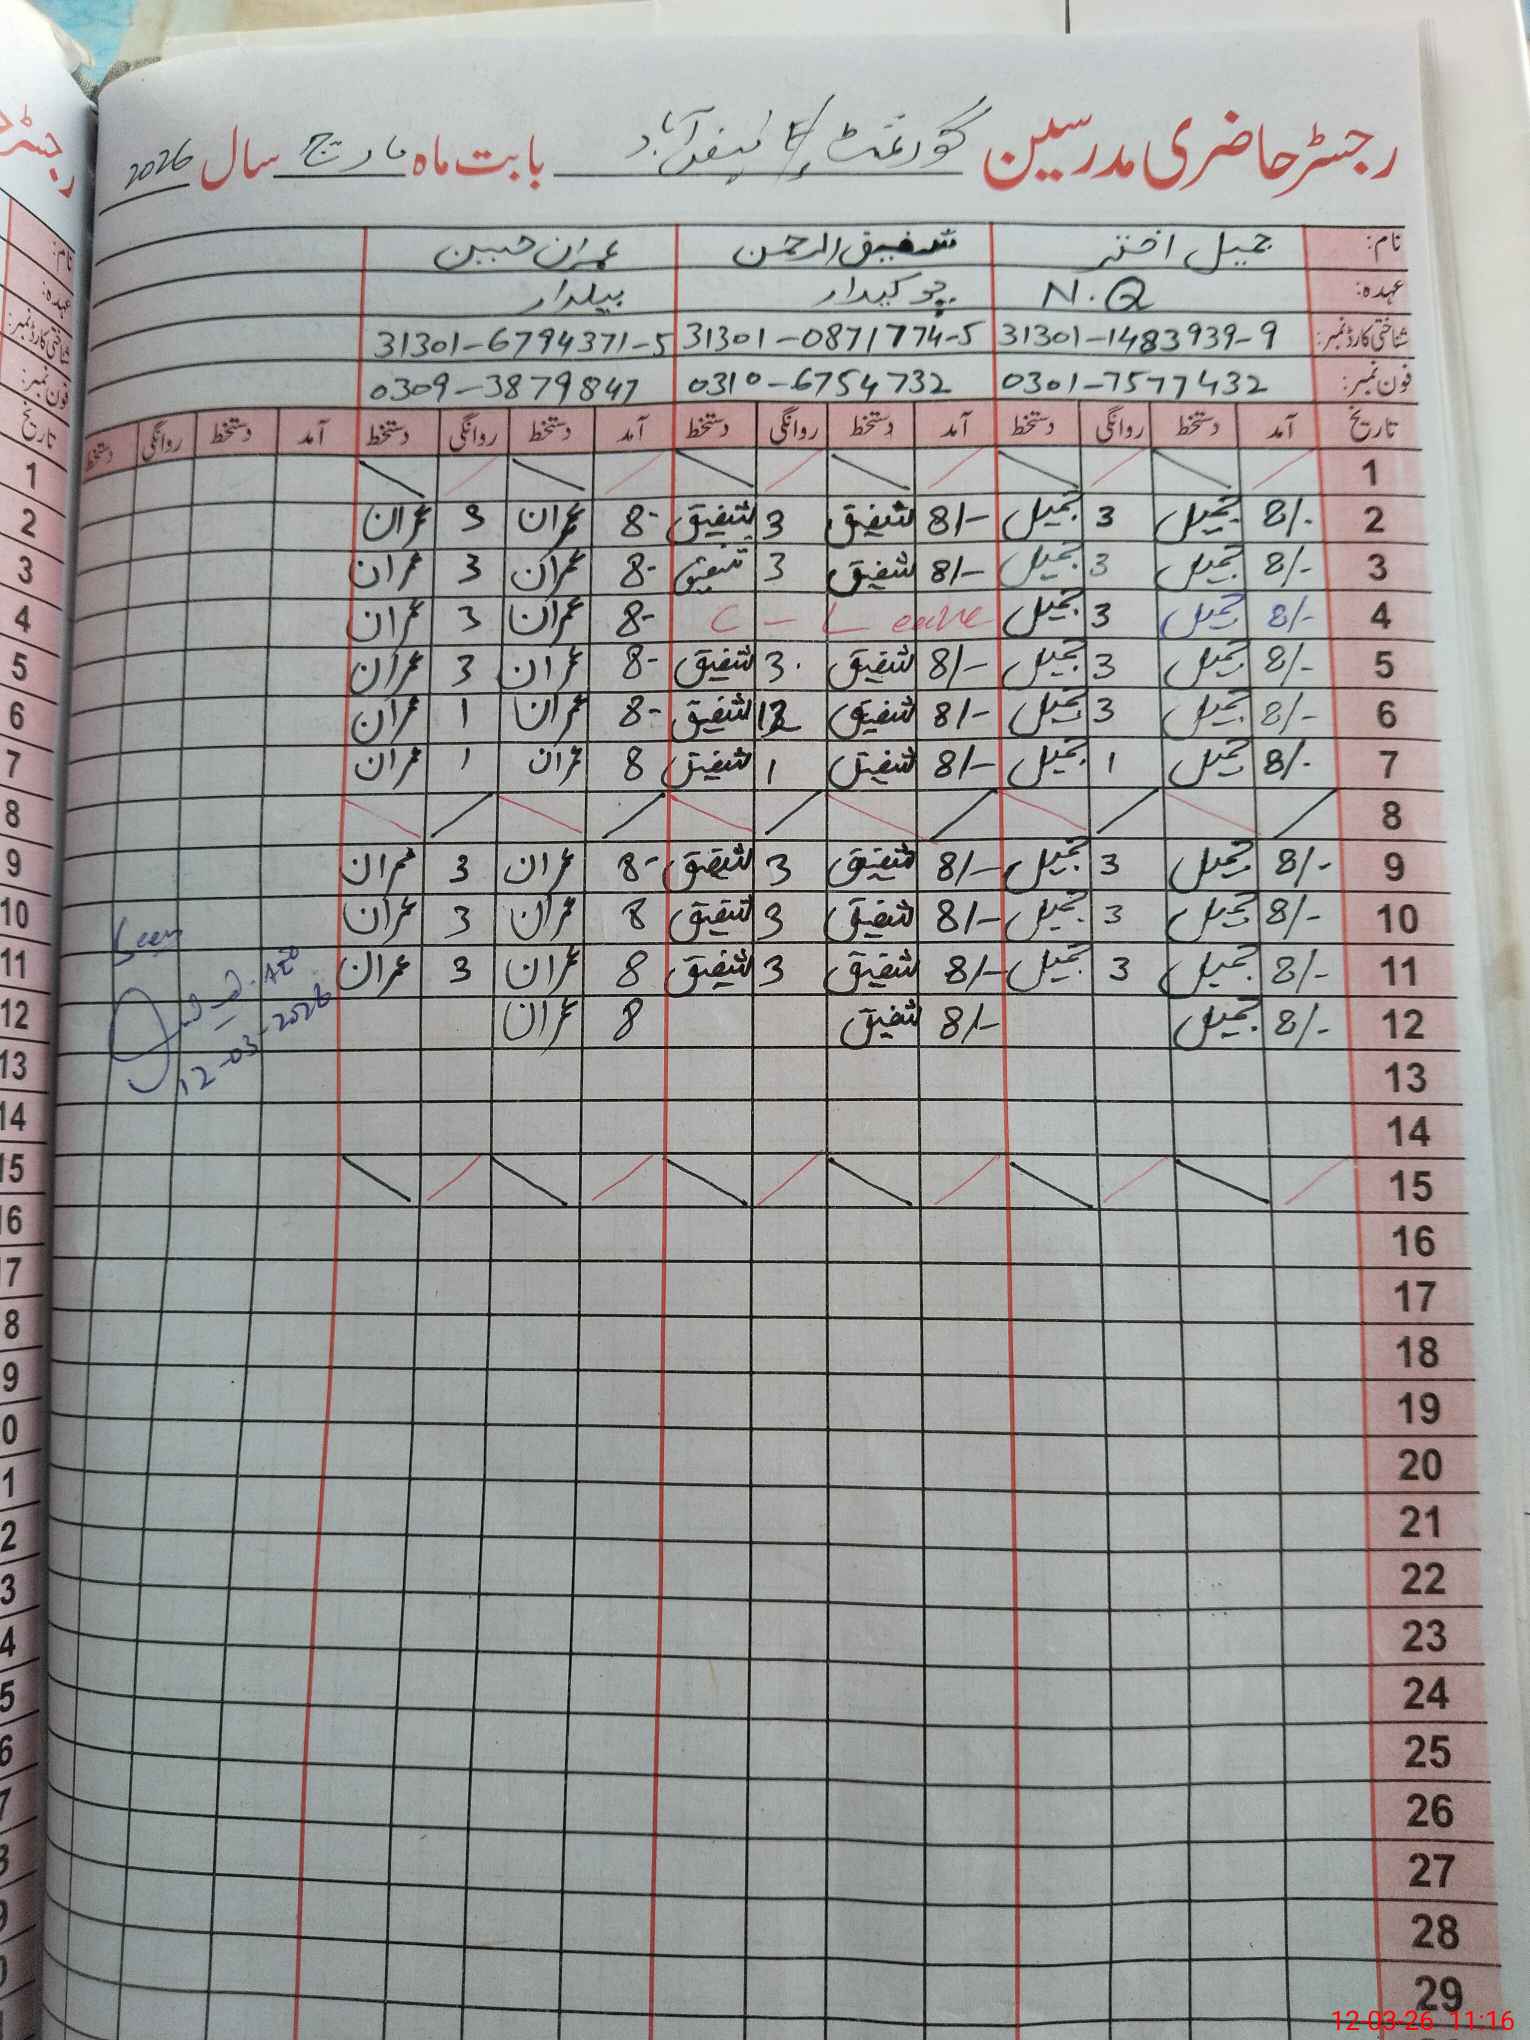 رجسٹر حاضری مدرسین گورنمنٹ بابت ماہ مارچ سال 2026
نام: جمیل اختر شفیق الرحمن عمران حسین
عہدہ: N.Q چوکیدار بیلدار
شناختی کارڈ نمبر: 31301-1483939-9 31301-0871774-5 31301-6794371-5
فون نمبر: 0301-7577432 0310-6754732 0309-3879847
تاریخ آمد دستخط روانگی دستخط آمد دستخط روانگی دستخط آمد دستخط روانگی دستخط آمد دستخط روانگی دستخط
1
2 8/- جمیل 3 جمیل 8/- شفیق 3 شفیق 8- عمران 3 عمران
3 8/- جمیل 3 جمیل 8/- شفیق 3 شفیق 8- عمران 3 عمران
4 8/- جمیل 3 جمیل C-Leave 8- عمران 3 عمران
5 8/- جمیل 3 جمیل 8/- شفیق 3 شفیق 8- عمران 3 عمران
6 8/- جمیل 3 جمیل 8/- شفیق 12 شفیق 8- عمران 1 عمران
7 8/- جمیل 1 جمیل 8/- شفیق 1 شفیق 8 عمران 1 عمران
8
9 8/- جمیل 3 جمیل 8/- شفیق 3 شفیق 8- عمران 3 عمران
10 8/- جمیل 3 جمیل 8/- شفیق 3 شفیق 8 عمران 3 عمران
Seen
11 8/- جمیل 3 جمیل 8/- شفیق 3 شفیق 8 عمران 3 عمران
AEO
12 8/- جمیل 8/- شفیق 8 عمران
12-03-2026
13
14
15
16
17
18
19
20
21
22
23
24
25
26
27
28
29
12-03-26 11:16